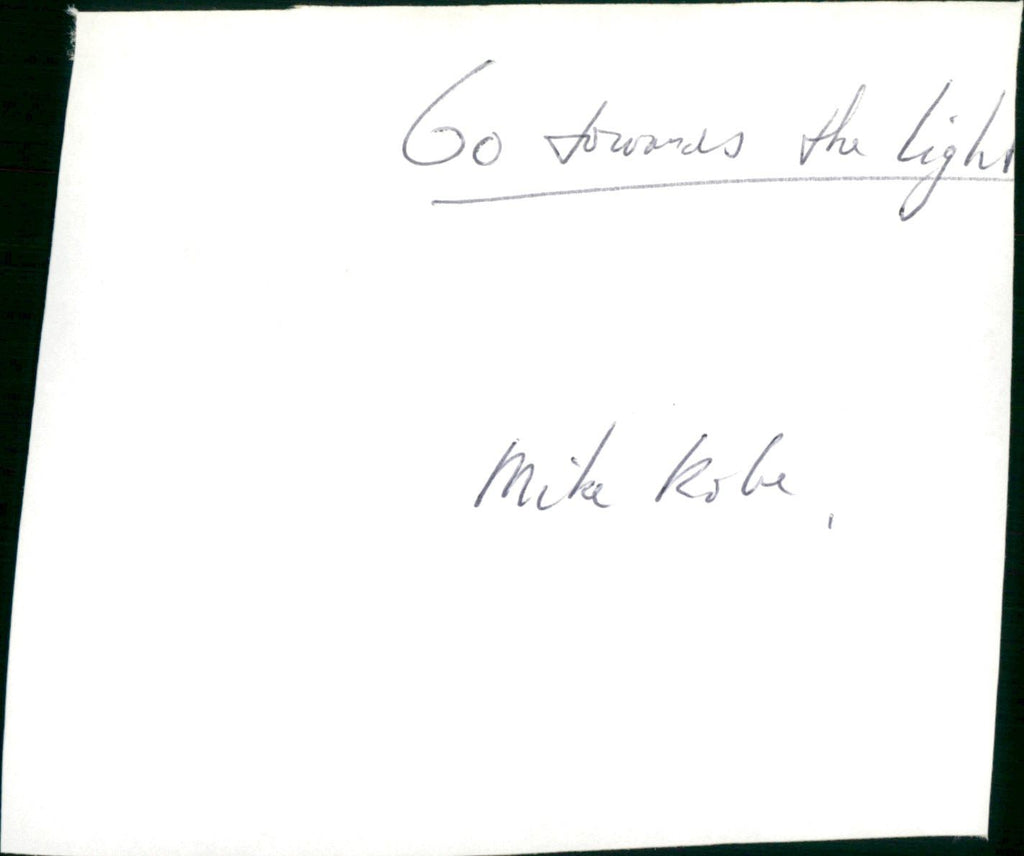 Go towards the light
Mike Kobe